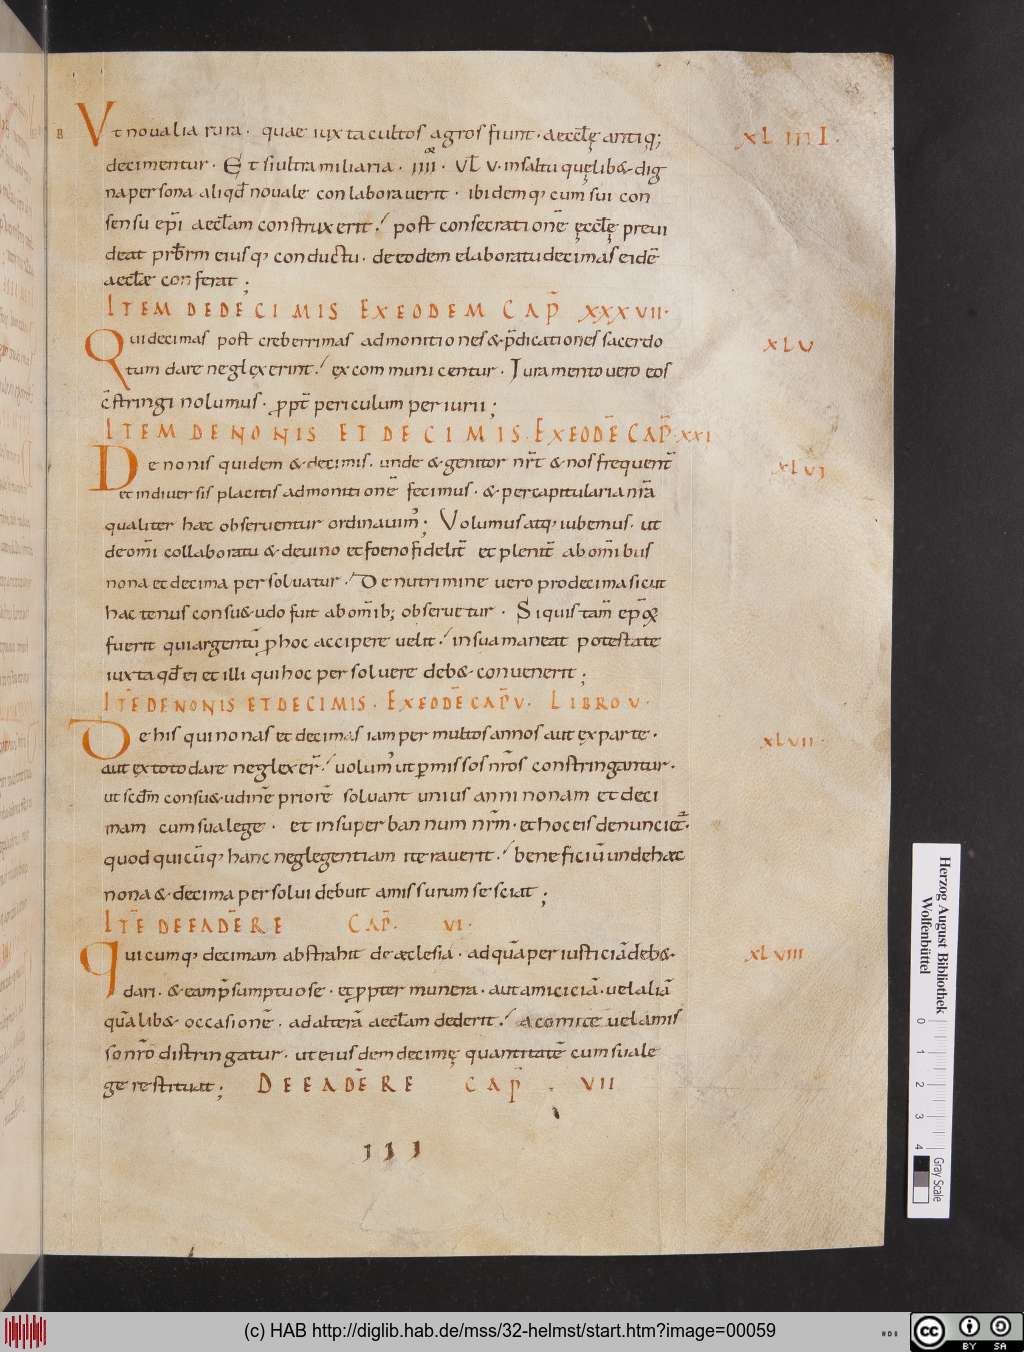 Vt noualia rura· quae iuxta cultos agros fiunt· aeccłę antiq;
decimentur· Et si ultra miliaria· IIII· uł V· in saltu quęlib& dig
na persona aliqđ nouale conlaborauerit· ibidemq; cum sui con
sensu ep̄i aeccłam construxerit· post consecrationē ęccłę preui
deat prb̄rm eiusq; conductu· de eodem elaboratu decimas eidē
aeccłae conferat;
ITEM DE DECIMIS EX EODEM CAP̄ XXXVII·
Qui decimas post creberrimas admonitiones & p̄dicationes sacerdo
tum dare neglexerint· excommunicentur· Iuramento uero eos
c̄stringi nolumus· ꝓpt̄ periculum periurii;
ITEM DE NONIS ET DECIMIS· EX EODĒ CAP̄· XXI
De nonis quidem & decimis· unde & genitor nr̄t & nos frequent̄
et in diuersis placitis admonitionē fecimus· & per capitularia nr̄a
qualiter haec obseruentur ordinauim᾽; Volumus atq; iubemus· ut
de om̄i collaboratu & de uino et foeno fidelit̄ et plenit̄ ab om̄ibus
nona et decima persoluatur· De nutrimine uero pro decima sicut
hactenus consu&udo fuit ab om̄ib; obseruetur· Si quis tam̄ ep̄oꝝ
fuerit qui argentū ꝓ hoc accipere uelit· in sua maneat potestate
iuxta qđ ei et illi qui hoc persoluere deb& conuenerit;
ITĒ DE NONIS ET DECIMIS· EX EODĒ CAP̄ V· LIBRO V·
De his qui nonas et decimas iam per multos annos aut ex parte·
aut ex toto dare neglexer̄· uolum᾽ ut ꝑ missos nr̄os constringantur·
ut scđm consu&udinē priorē soluant unius anni nonam et deci
mam cum sua lege· et insuper bannum nr̄m· et hoc eis denunciet̄·
quod quicūq; hanc neglegentiam iterauerit· beneficiū unde haec
nona & decima persolui debuit amissurum se sciat;
ITĒ DE EADĒ RE CAP̄· VI·
Quicumq; decimam abstrahit de æclesia· ad quā per iusticiā deb&·
dari· & eam p̄sumptuose· et ꝓpter munera· aut amiciciā· uel aliā
quālib& occasionē· ad alterā aeccłam dederit· a comite uel a mis
so nr̄o distringatur· ut eiusdem decimę quantitatē cum sua le
ge restituat; DE EADĒ RE CAP̄· VII
III
XLIIII·
XLV
XLVI
XLVII·
XLVIII
Herzog August Bibliothek
Wolfenbüttel
0 1 2 3 4
Gray Scale
(c) HAB http://diglib.hab.de/mss/32-helmst/start.htm?image=00059
cc BY SA